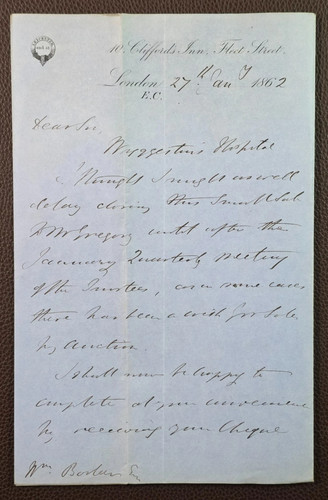 10, Clifford's Inn, Fleet Street.
London 27th Jany 1862
E.C.
Dear Sir
Wyggeston's Hospital
I thought I might as well
delay closing this small Sale
Mr Gregory until after the
January Quarterly Meeting
of the Trustees, as in some cases
there has been a wish for Sale
by auction
I shall now be happy to
complete at your convenience
by receiving your Cheque
Wm